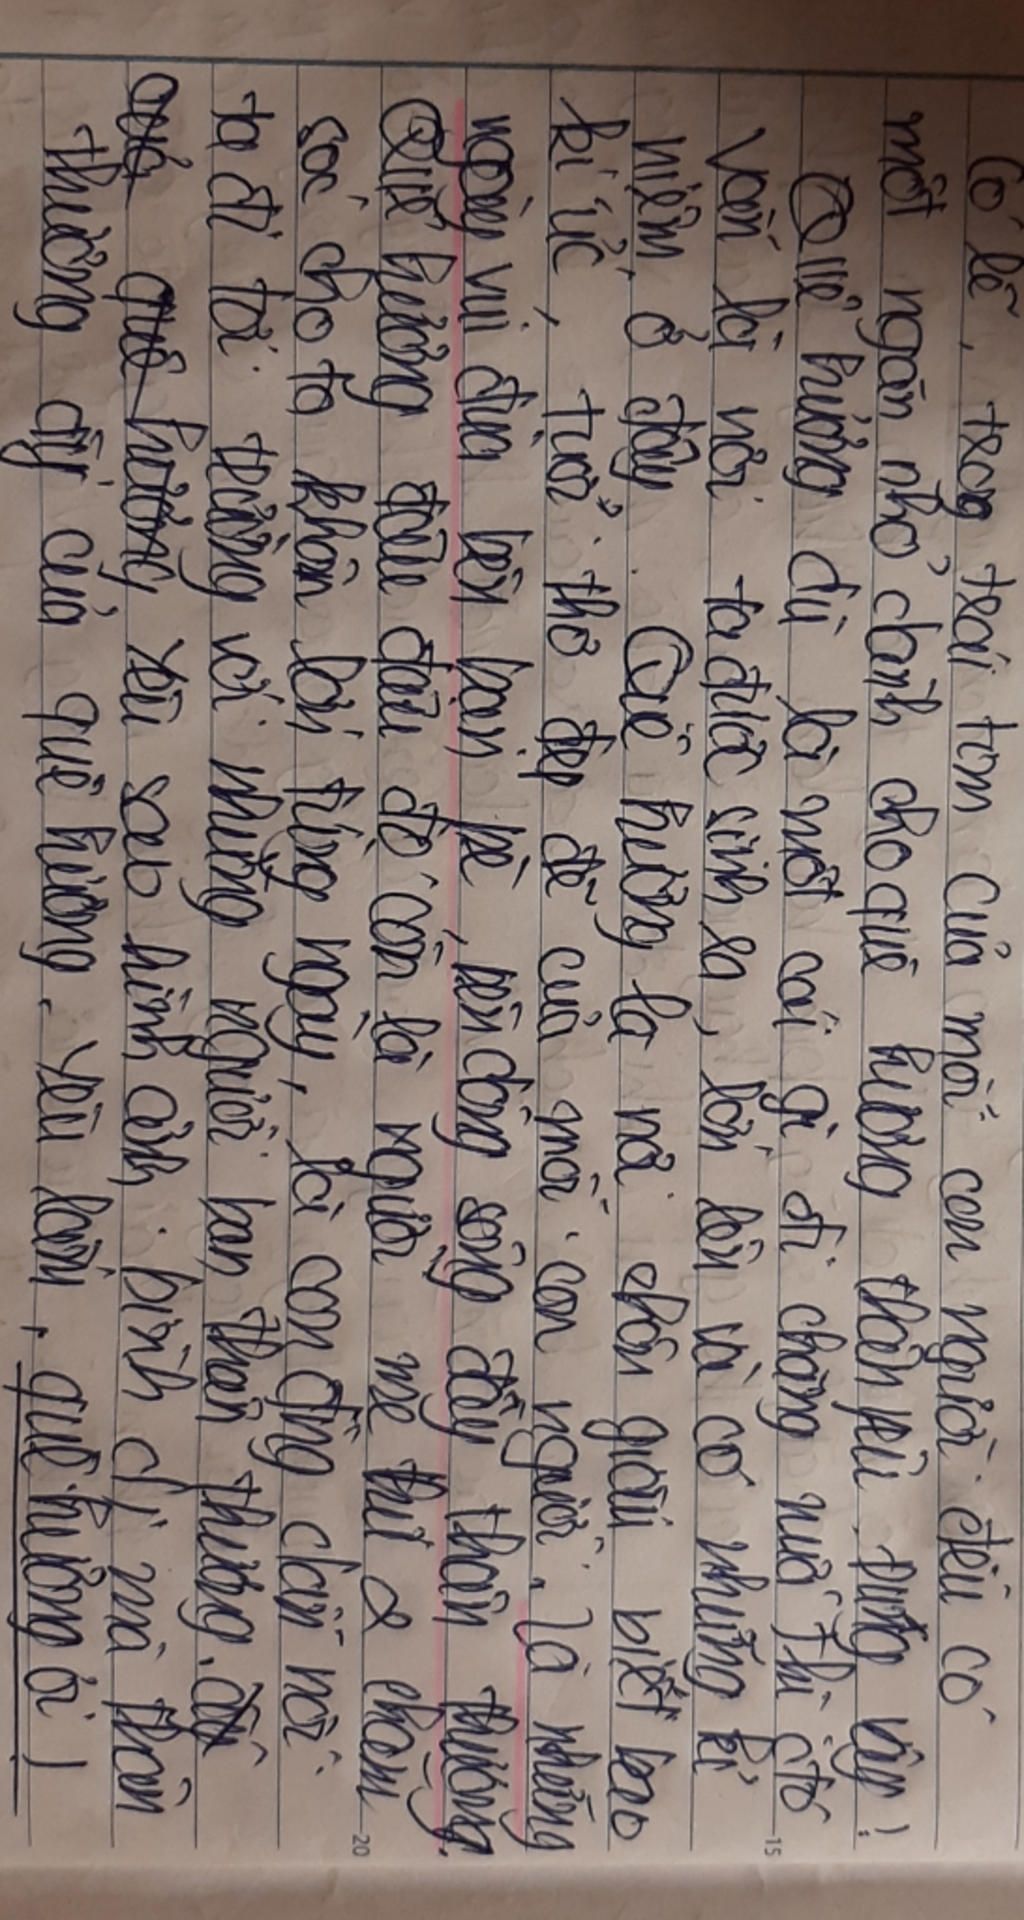 Có lẽ, trong trái tim của mỗi con người đều có
một ngăn nhỏ dành cho quê hương thân yêu, đúng vậy!
Quê hương dù là một cái gì đi chăng nữa thì đó
vẫn là nơi ta được sinh ra, lớn lên và có những kỉ
niệm ở đây. Quê hương là nơi chôn giấu biết bao
kí ức, tuổi thơ đẹp đẽ của mỗi con người. Là những
ngày vui đùa bên bạn bè, bên dòng sông đầy thân thương.
Quê hương đâu đâu đó còn là người mẹ thứ 2 chăm
sóc cho ta khôn lớn từng ngày, là con đường dẫn nối
ta đi tới trường với những người bạn thân thương.
quê hương yêu sao hình ảnh bình dị mà thân
thương ấy của quê hương. Yêu lắm, quê hương ơi!
15
20